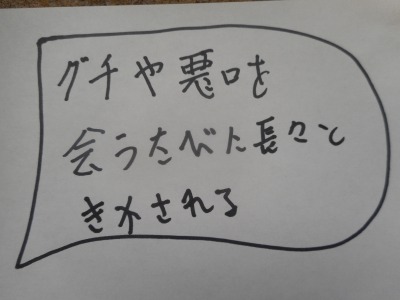 グチや悪口を
会うたびに長々と
きかされる